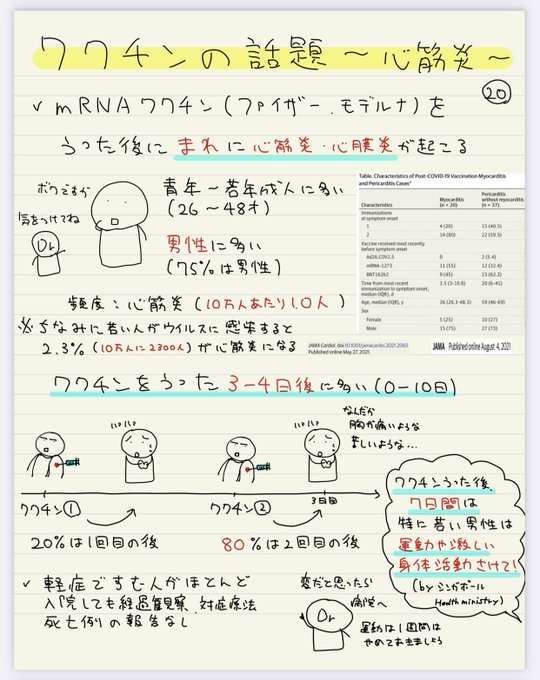 ワクチンの話題 ~心筋炎~
20
✓ mRNAワクチン(ファイザー.モデルナ)を
うった後に まれに 心筋炎・心膜炎が起こる
ボクですか
気をつけてね
Dr
青年~若年成人に多い
(26~48才)
男性に多い
(75%は男性)
Table. Characteristics of Post–COVID-19 Vaccination Myocarditis
and Pericarditis Cases
Characteristics
Myocarditis
(n = 20)
Pericarditis
without myocarditis
(n = 37)
Immunizations
at symptom onset
1 4 (20) 15 (40.5)
2 16 (80) 22 (59.5)
Vaccine received most recently
before symptom onset
Ad26.COV2.S 0 2 (5.4)
mRNA-1273 11 (55) 12 (32.4)
BNT162b2 9 (45) 23 (62.2)
Time from most recent
immunization to symptom onset,
median (IQR), d
3.5 (3-10.8) 20 (6-41)
Age, median (IQR), y 36 (26.3-48.3) 59 (46-69)
Sex
Female 5 (25) 10 (27)
Male 15 (75) 27 (73)
頻度:心筋炎(10万人あたり1.0人)
※ちなみに若い人がウイルスに感染すると
2.3%(10万人に2300人)が心筋炎になる
JAMA Cardiol. doi:10.1001/jamacardio.2021.2065
Published online May 27, 2021.
JAMA Published online August 4, 2021
ワクチンをうった3-4日後に多い(0-10日)
なんだか
胸が痛いような
苦しいような…
ワクチン①
ワクチン②
3日目
20%は1回目の後
80%は2回目の後
ワクチンうった後、
7日間は
特に若い男性は
運動や激しい
身体活動さけて!
(by シンガポール
Health ministry)
✓ 軽症ですむ人がほとんど
入院しても経過観察、対症療法
死亡例の報告なし
変だと思ったら
病院へ
Dr
運動は1週間は
やめておきましょう